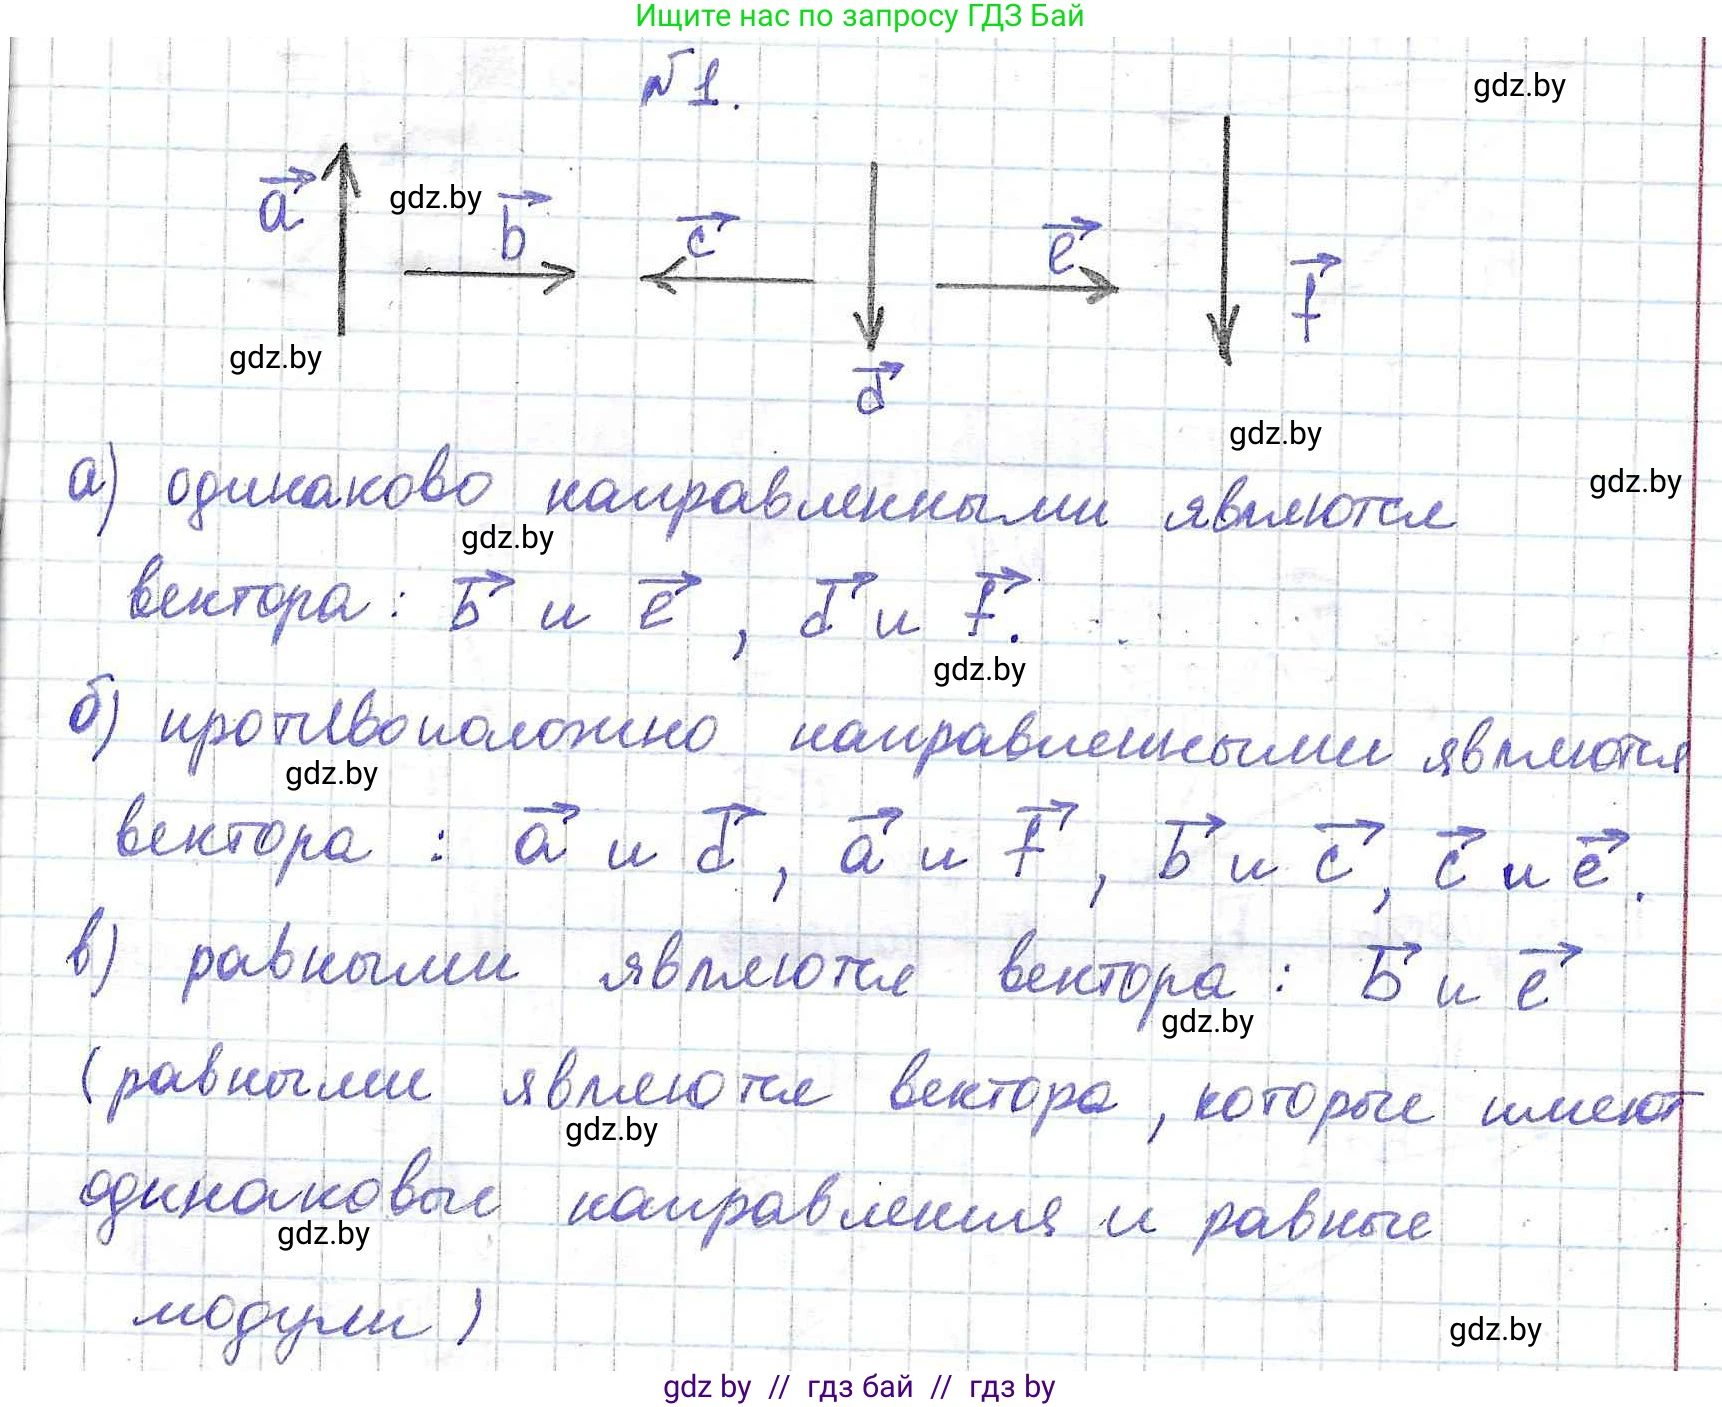 Ищите нас по запросу ГДЗ Бай
№1.
gdz.by
a⃗
gdz.by
b⃗
c⃗
e⃗
f⃗
gdz.by
d⃗
gdz.by
а) одинаково направленными являются
gdz.by
gdz.by
вектора: b⃗ и e⃗, d⃗ и f⃗.
gdz.by
б) противоположно направленными являются
gdz.by
вектора : a⃗ и d⃗, a⃗ и f⃗, b⃗ и c⃗, c⃗ и e⃗.
в) равными являются вектора: b⃗ и e⃗
gdz.by
(равными являются вектора, которые имеют
gdz.by
одинаковые направления и равные
gdz.by
модули)
gdz.by
gdz by // гдз бай // гдз by